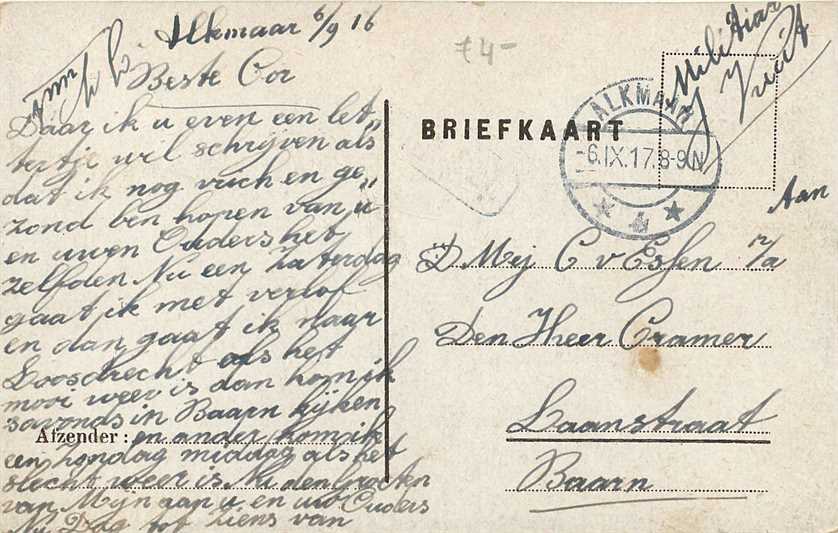 Alkmaar 6/9 16
Beste Cor
Daar ik u even een let"
tertje wil schrijven als
dat ik nog vrich en ge"
zond ben hopen van u"
en uwen Ouders het
zelfden Nu een Zaterdag
gaat ik met verlof
en dan gaat ik naar
Loosdrecht als het
mooi weer is dan kom ik
savonds in Baarn kijken
Afzender : en ander kom ik
een Zondag middag als het
slecht weer is Nu den Groeten
van Mijn aan u en uw Ouders
Nu Dag tot Ziens van
f 4-
Militair
Vrij
BRIEFKAART
ALKMAAR
-6.IX.17.8-9N
4
Aan
Mej C v Essen
Den Heer Cramer
Laanstraat
Baarn